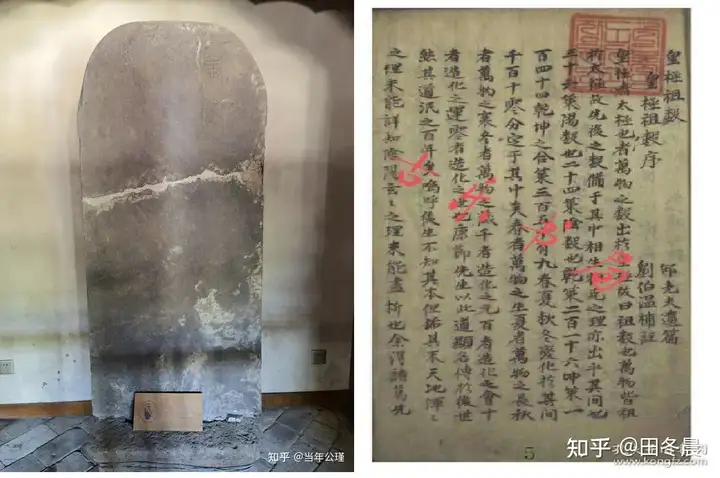 皇極祖數
皇極祖數序
邵老夫遺篇
劉伯温補註
皇極者太極也者萬物之數出於
故曰祖數也萬物皆祖
於太極故先後之數備于其中相生
之理亦出乎其間也
三十六策陽數也二十四策陰數也乾策二百一十六坤策一
百四十四乾坤之合策三百
九春夏秋冬變化於其間
千百十零分定于其中矣春者萬物之生夏者萬物之長秋
者萬物之衰冬者萬物之
千者造化之元百者造化之會十
者造化之運零者造化之
康節先生以此道顯名傳於後世
然其道泯之百年矣嗚呼後生不知其本但
其本天地渾
之理未能詳知陰陽
之理未能盡析也余得諸篤先
5
知乎 @当年公瑾
知乎 @田冬晨
www.kongfz.com